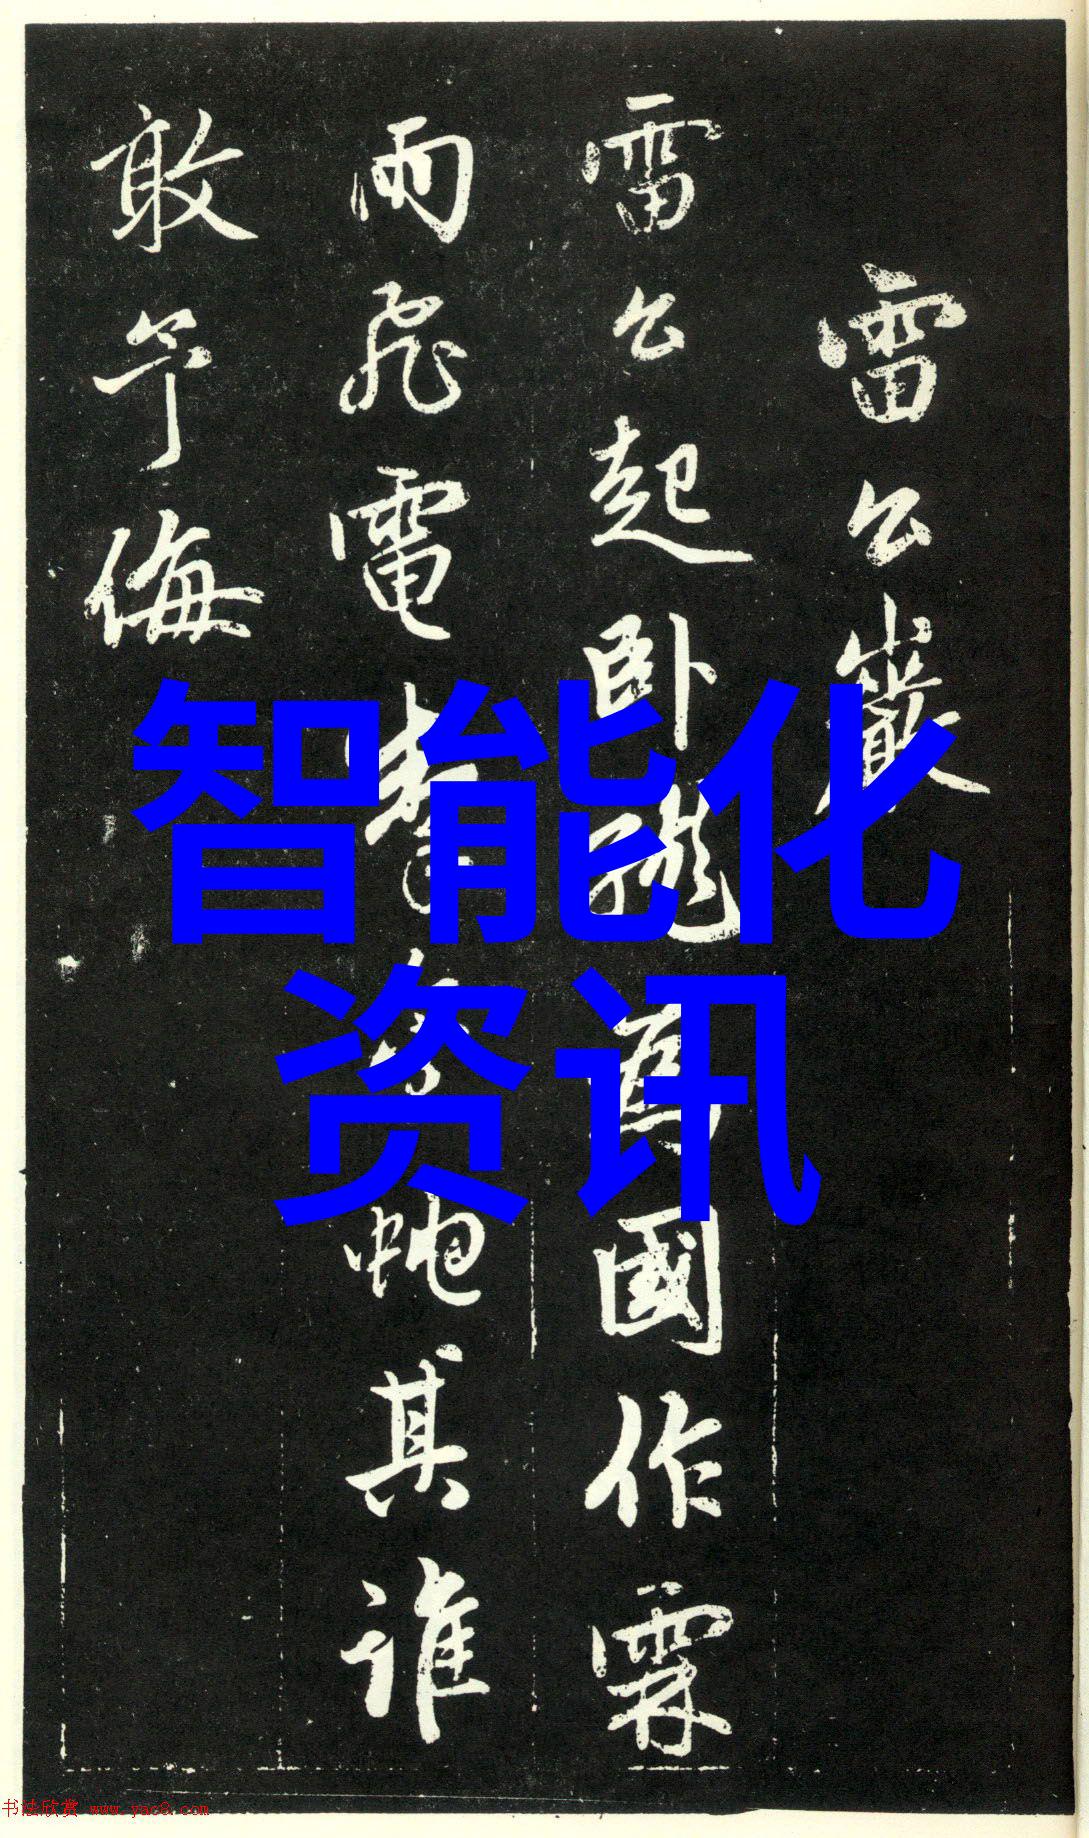 雷公巖
雷公起卧龍為國作霖
雨飛電掣虵其誰
敢予侮
智能化
资讯
书法欣赏 www.yac8.com